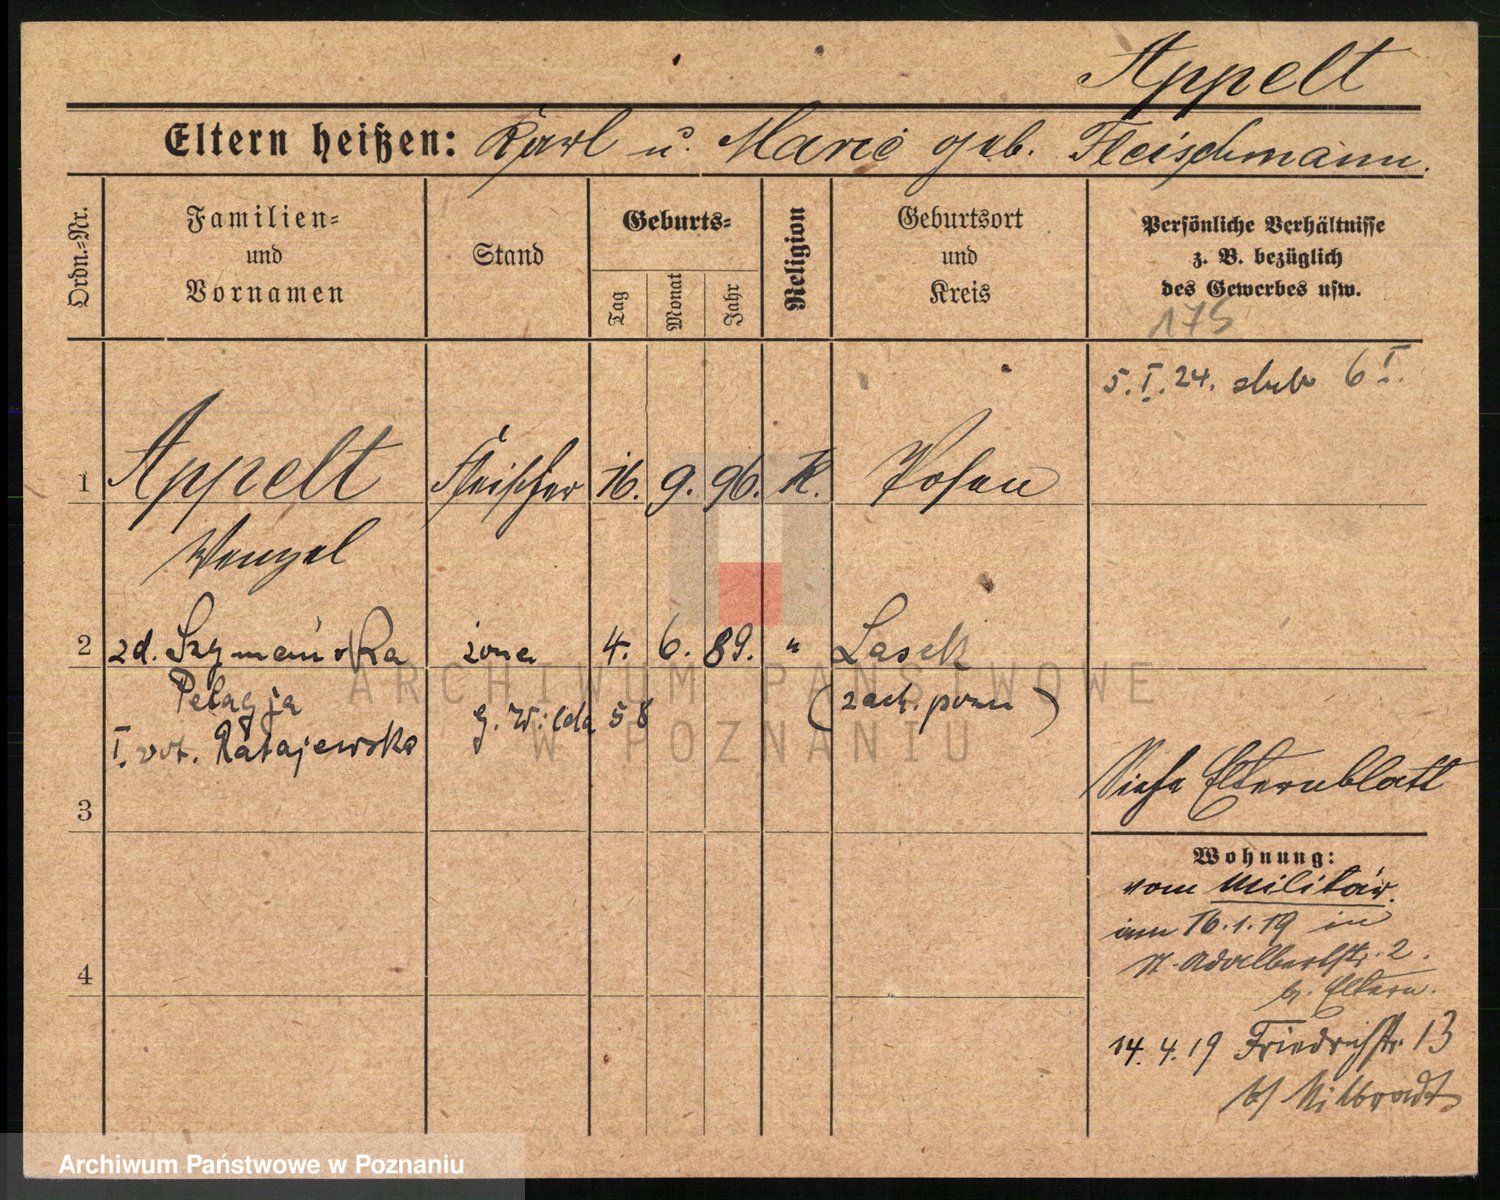 Appelt
Eltern heißen: Karl u. Marie geb. Fleischmann.
Ordn.=Nr.
Familien=
und
Vornamen
Stand
Geburts=
Tag
Monat
Jahr
Religion
Geburtsort
und
Kreis
Persönliche Verhältnisse
z. B. bezüglich
des Gewerbes usw.
175
5. I. 24. ślub 6 I.
1 Appelt Fleischer 16. 9. 96. K. Posen
Wenzel
2 zd. Szymańska żona 4. 6. 89. " Lasek
Pelagja g. Wilda 58 (zach. pozn)
I. vot. Ratajewska
Siehe Elternblatt
3
Wohnung:
vom Militär.
am 16.1.19 in
St. Adalbertstr. 2.
b. Eltern.
4
14. 4. 19 Friedrichstr. 13
b/ Milbradt
ARCHIWUM PAŃSTWOWE
W POZNANIU
Archiwum Państwowe w Poznaniu